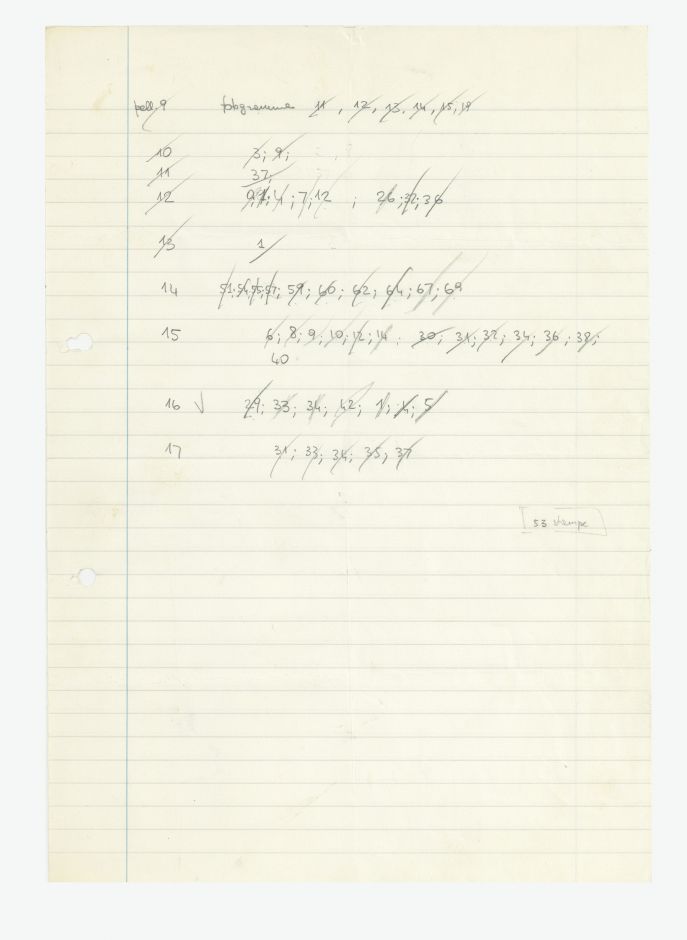 pell. 9 fotogramma 11, 12, 13, 14, 15, 19
10 3; 9;
11 37;
12 9; 1; 4; 7; 12 ; 26; 32; 36
13 1
14 51; 54; 55; 57; 59; 60; 62; 64; 67; 69
15 6; 8; 9; 10; 12; 14; 30; 31; 32; 34; 36; 38;
40
16 √ 29; 33; 34; 42; 1; 4; 5
17 31; 33; 34; 35; 37
[53 stampe]